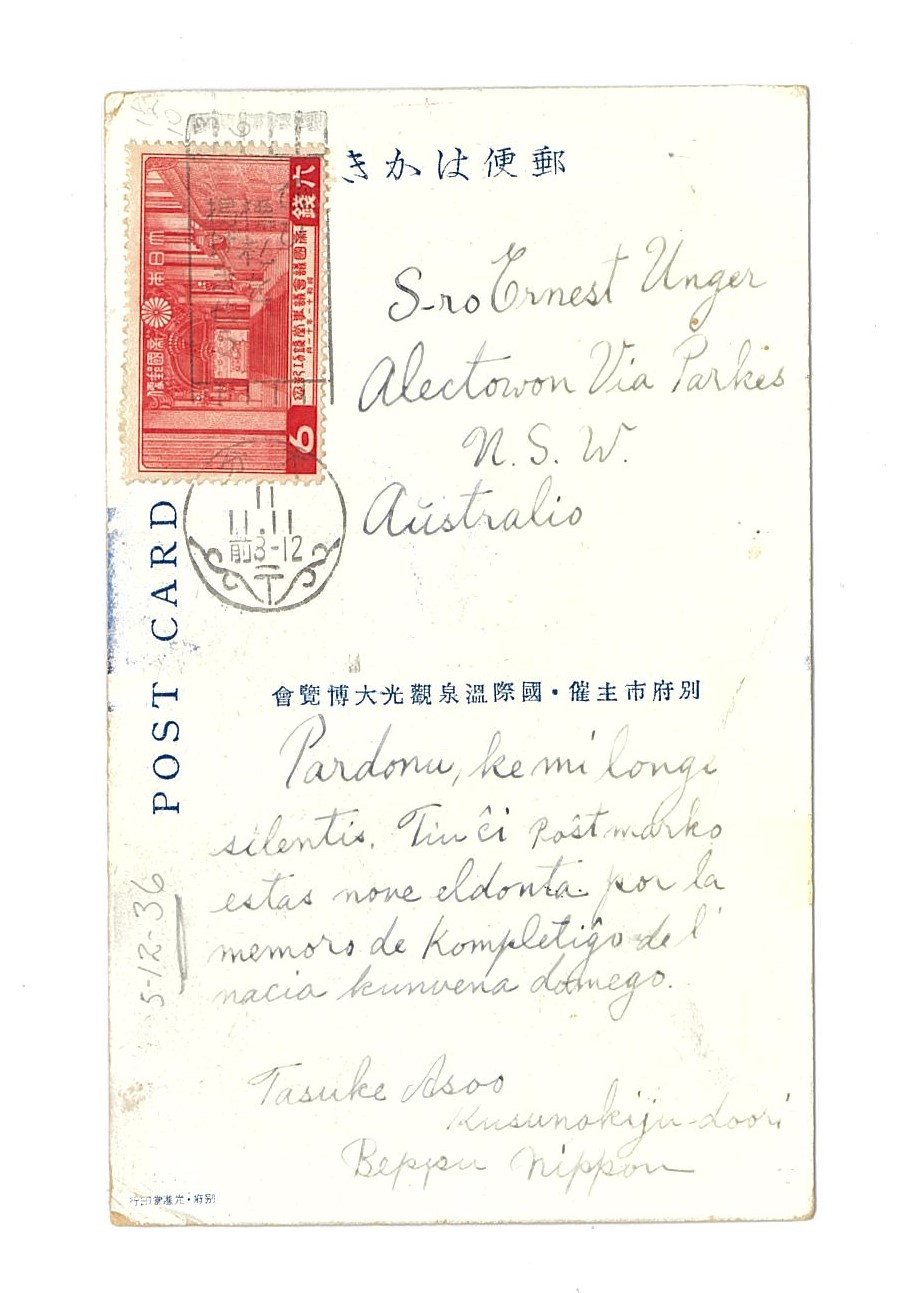 郵便はかき
六錢
大日本
帝國郵便
帝國議會議事堂竣功紀念
昭和十一年十一月
6
11
11.11
前8-12
POST CARD
S-ro Ernest Unger
Alectowon Via Parkes
N. S. W.
Aŭstralio
別府市主催・國際溫泉觀光大博覽會
Pardonu, ke mi longe
silentis. Tiu ĉi poŝtmarko
estas nove eldonta por la
memoro de kompletiĝo de l'
nacia kunvena domego.
5-12-36
Tasuke Asoo
Kusunokiju-doori
Beppu Nippon
別府・光進堂印行